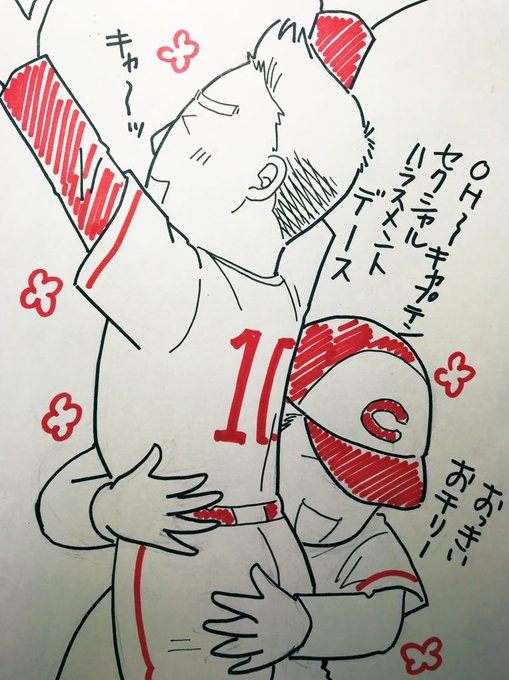 キャ～ッ
OH～キャプテン
セクシャル
ハラスメント
デース
10
C
おっきい
おチリー